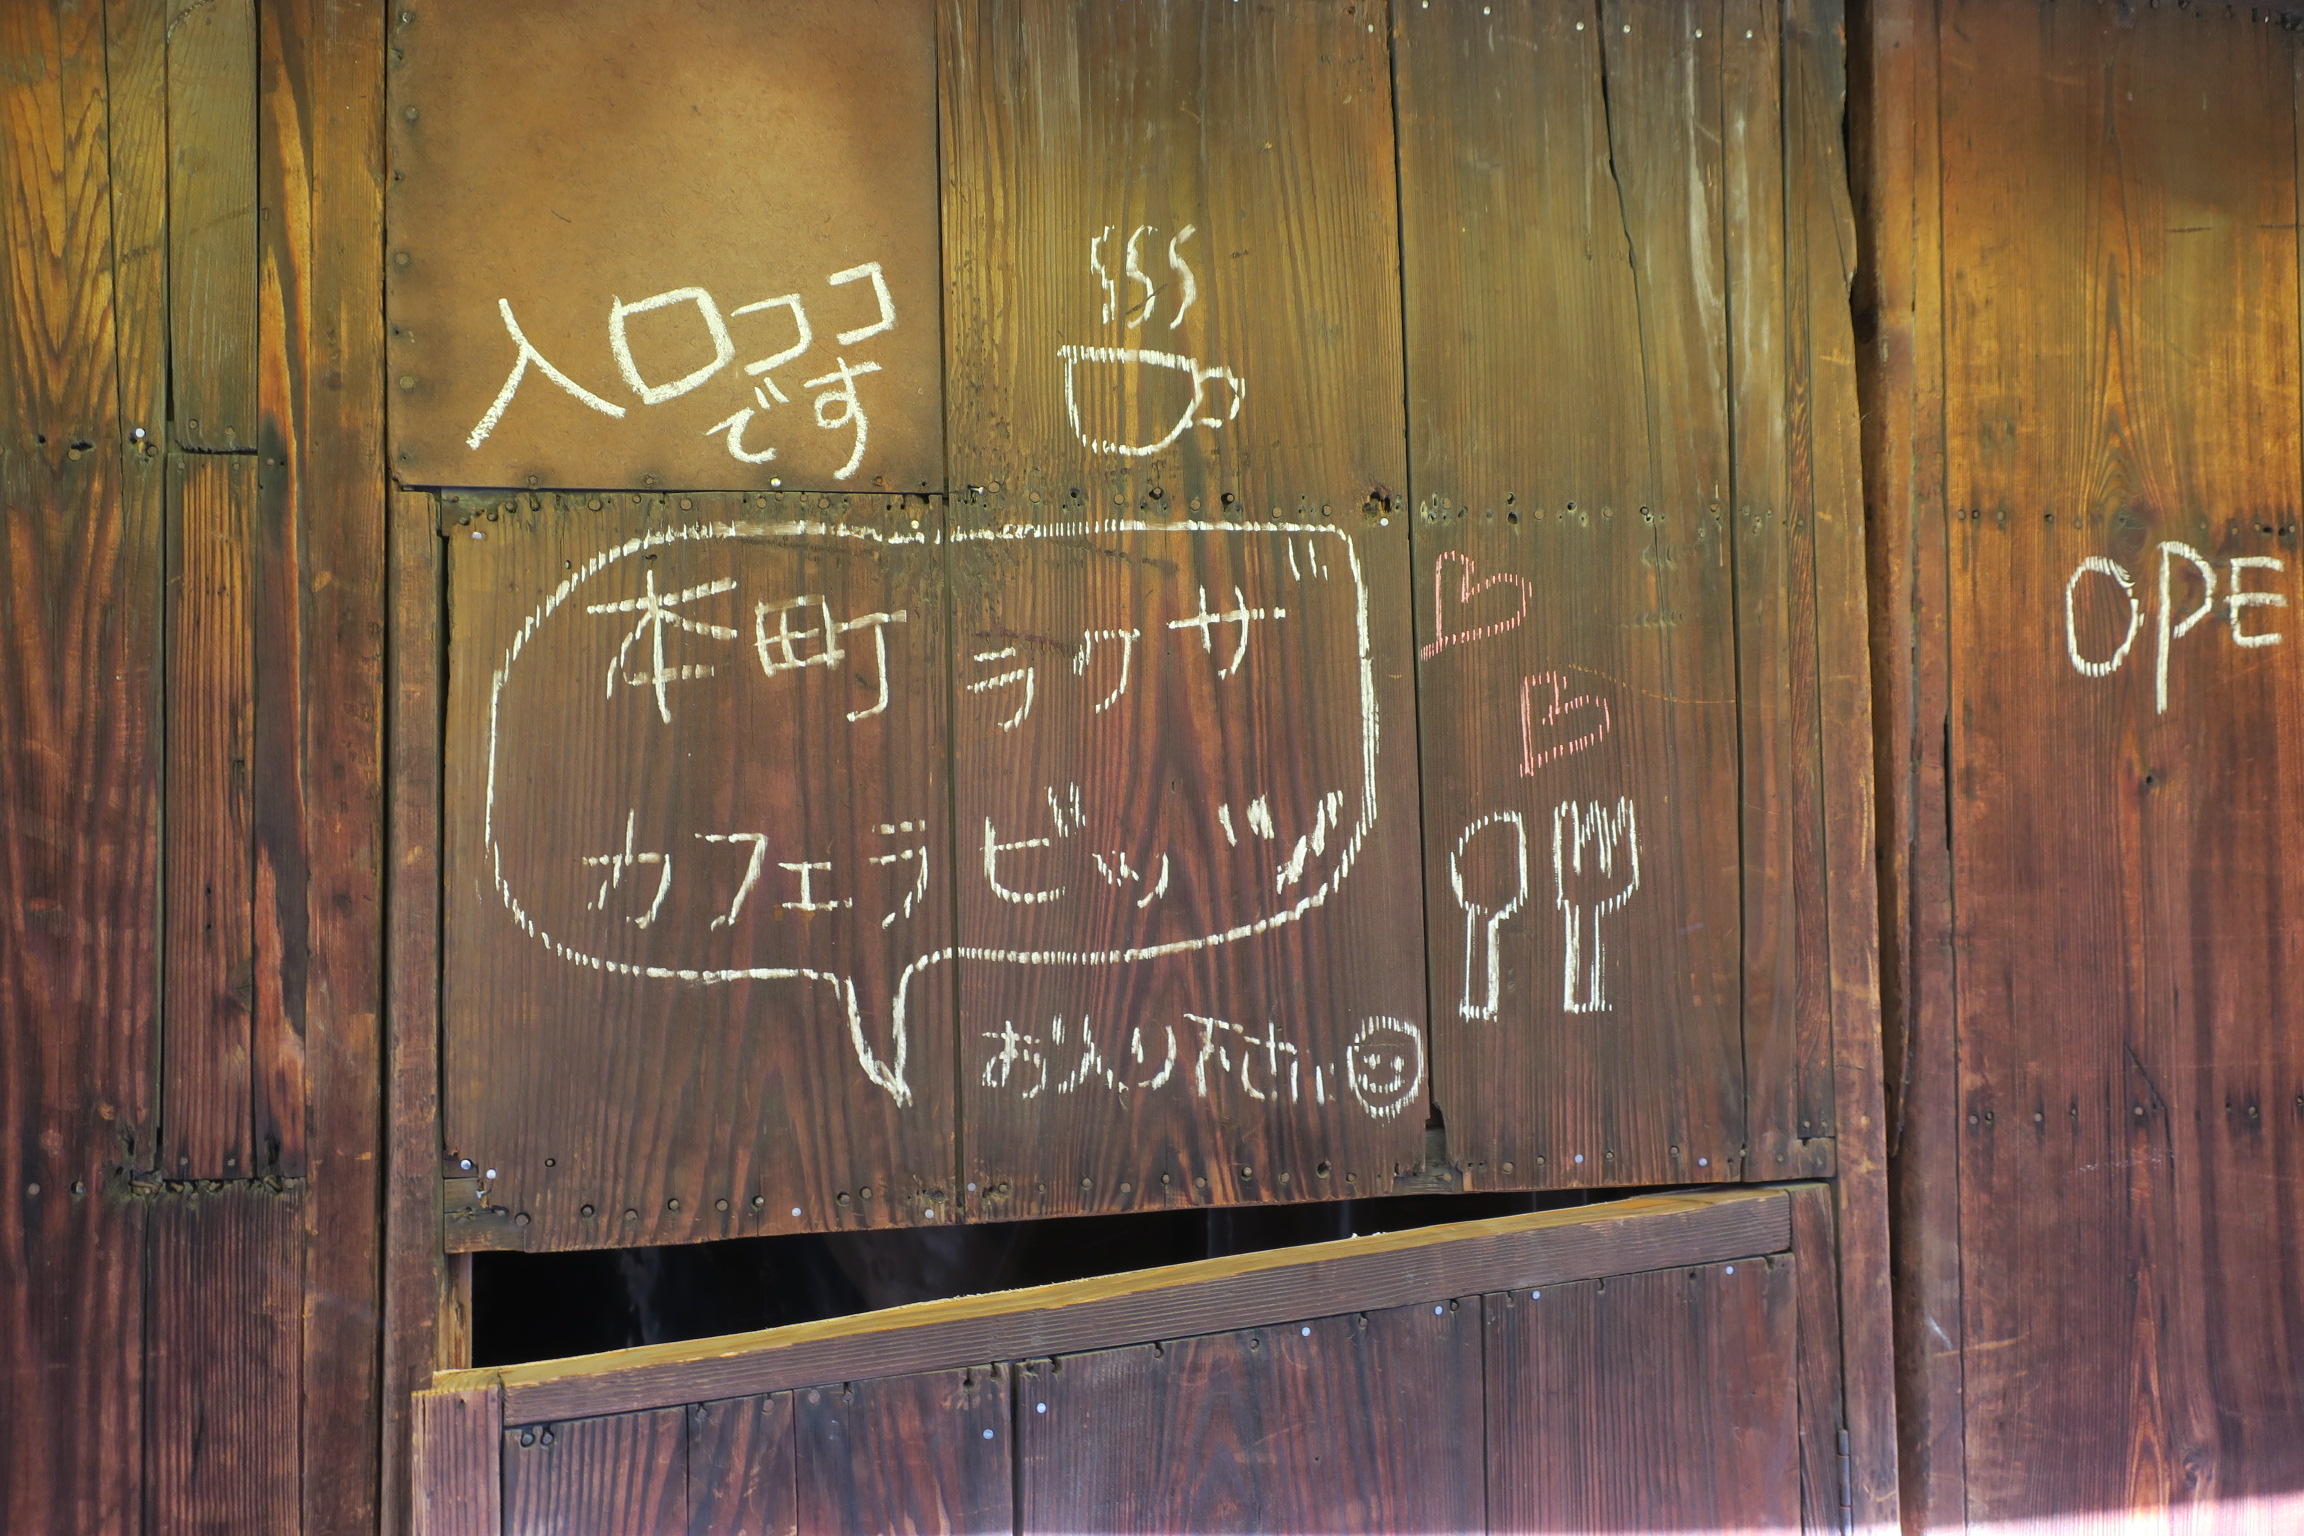 入口ココ
です
本町ラクザ
カフェラビッツ
お入り下さい
OPE